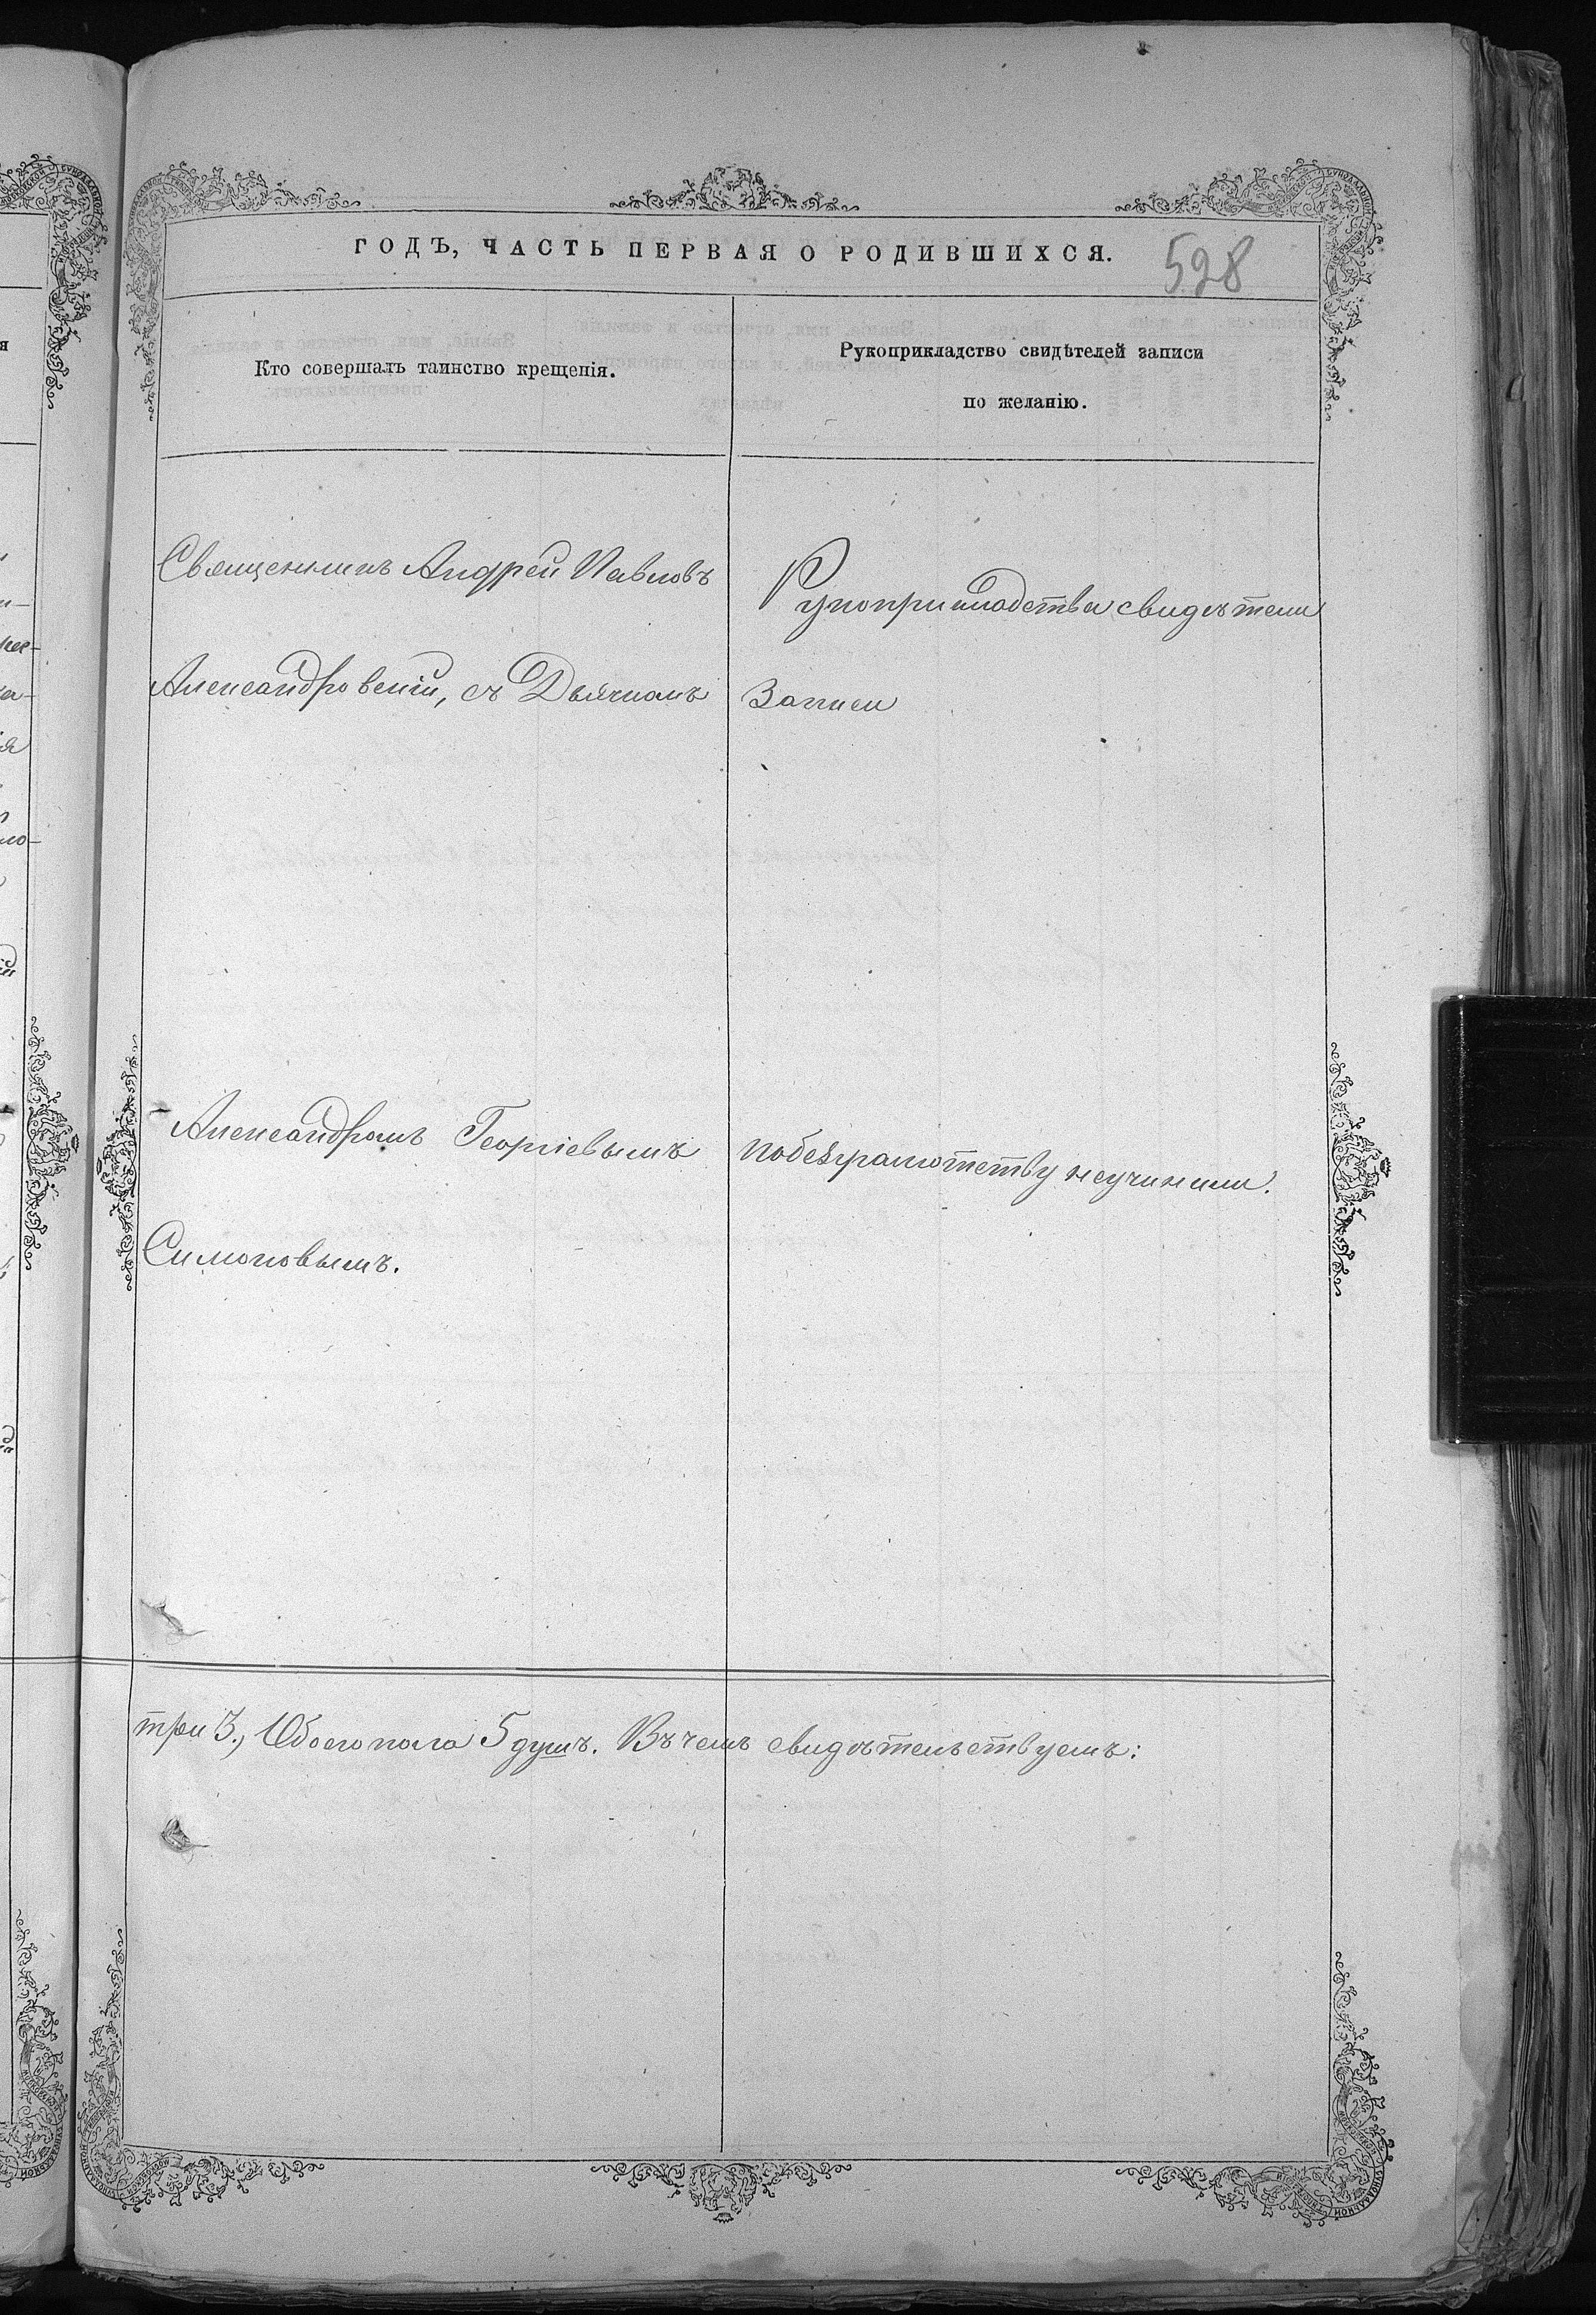 ГОДЪ, ЧАСТЬ ПЕРВАЯ О РОДИВШИХСЯ.
528
Кто совершалъ таинство крещенія.
Рукоприкладство свидѣтелей записи
по желанію.
Священникъ Андрей Павловъ
Александровскій, съ Дьячкомъ
Александромъ Георгіевымъ
Симоновымъ.
Рукоприкладства свидѣтели
Записи
побезграмотству неучинили.
три 3., Обоего пола 5 душъ. Въ чемъ свидѣтельствуемъ: